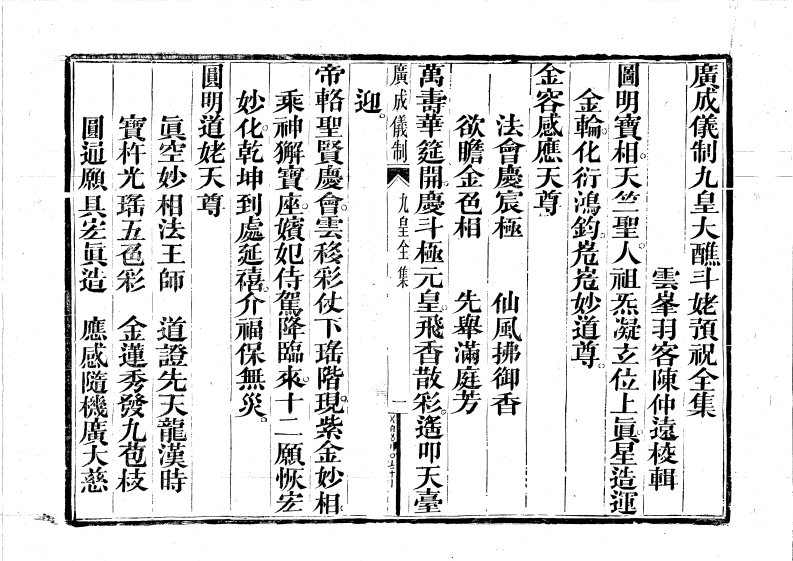 廣成儀制九皇大醮斗姥預祝全集
雲峯羽客陳仲遠校輯
圓明寶相。天竺聖人。祖炁凝玄位上眞。星造運
金輪。化衍鴻鈞。巍巍妙道尊。
金容感應天尊
法會慶宸極　仙風拂御香
欲瞻金色相　先舉滿庭芳
萬壽華筵開。慶斗極元皇。飛香散彩。遙叩天臺
迎。
廣成儀制　九皇全集　一
帝輅聖賢慶會。雲移彩仗下瑤階。現紫金妙相。
乘神獬寶座。嬪妃侍駕降臨來。十二願恢宏
妙化。乾坤到處延禧。介福保無災。
圓明道姥天尊
眞空妙相法王師　道證先天龍漢時
寶杵光瑤五色彩　金蓮秀發九苞枝
圓通願具宏眞造　應感隨機廣大慈